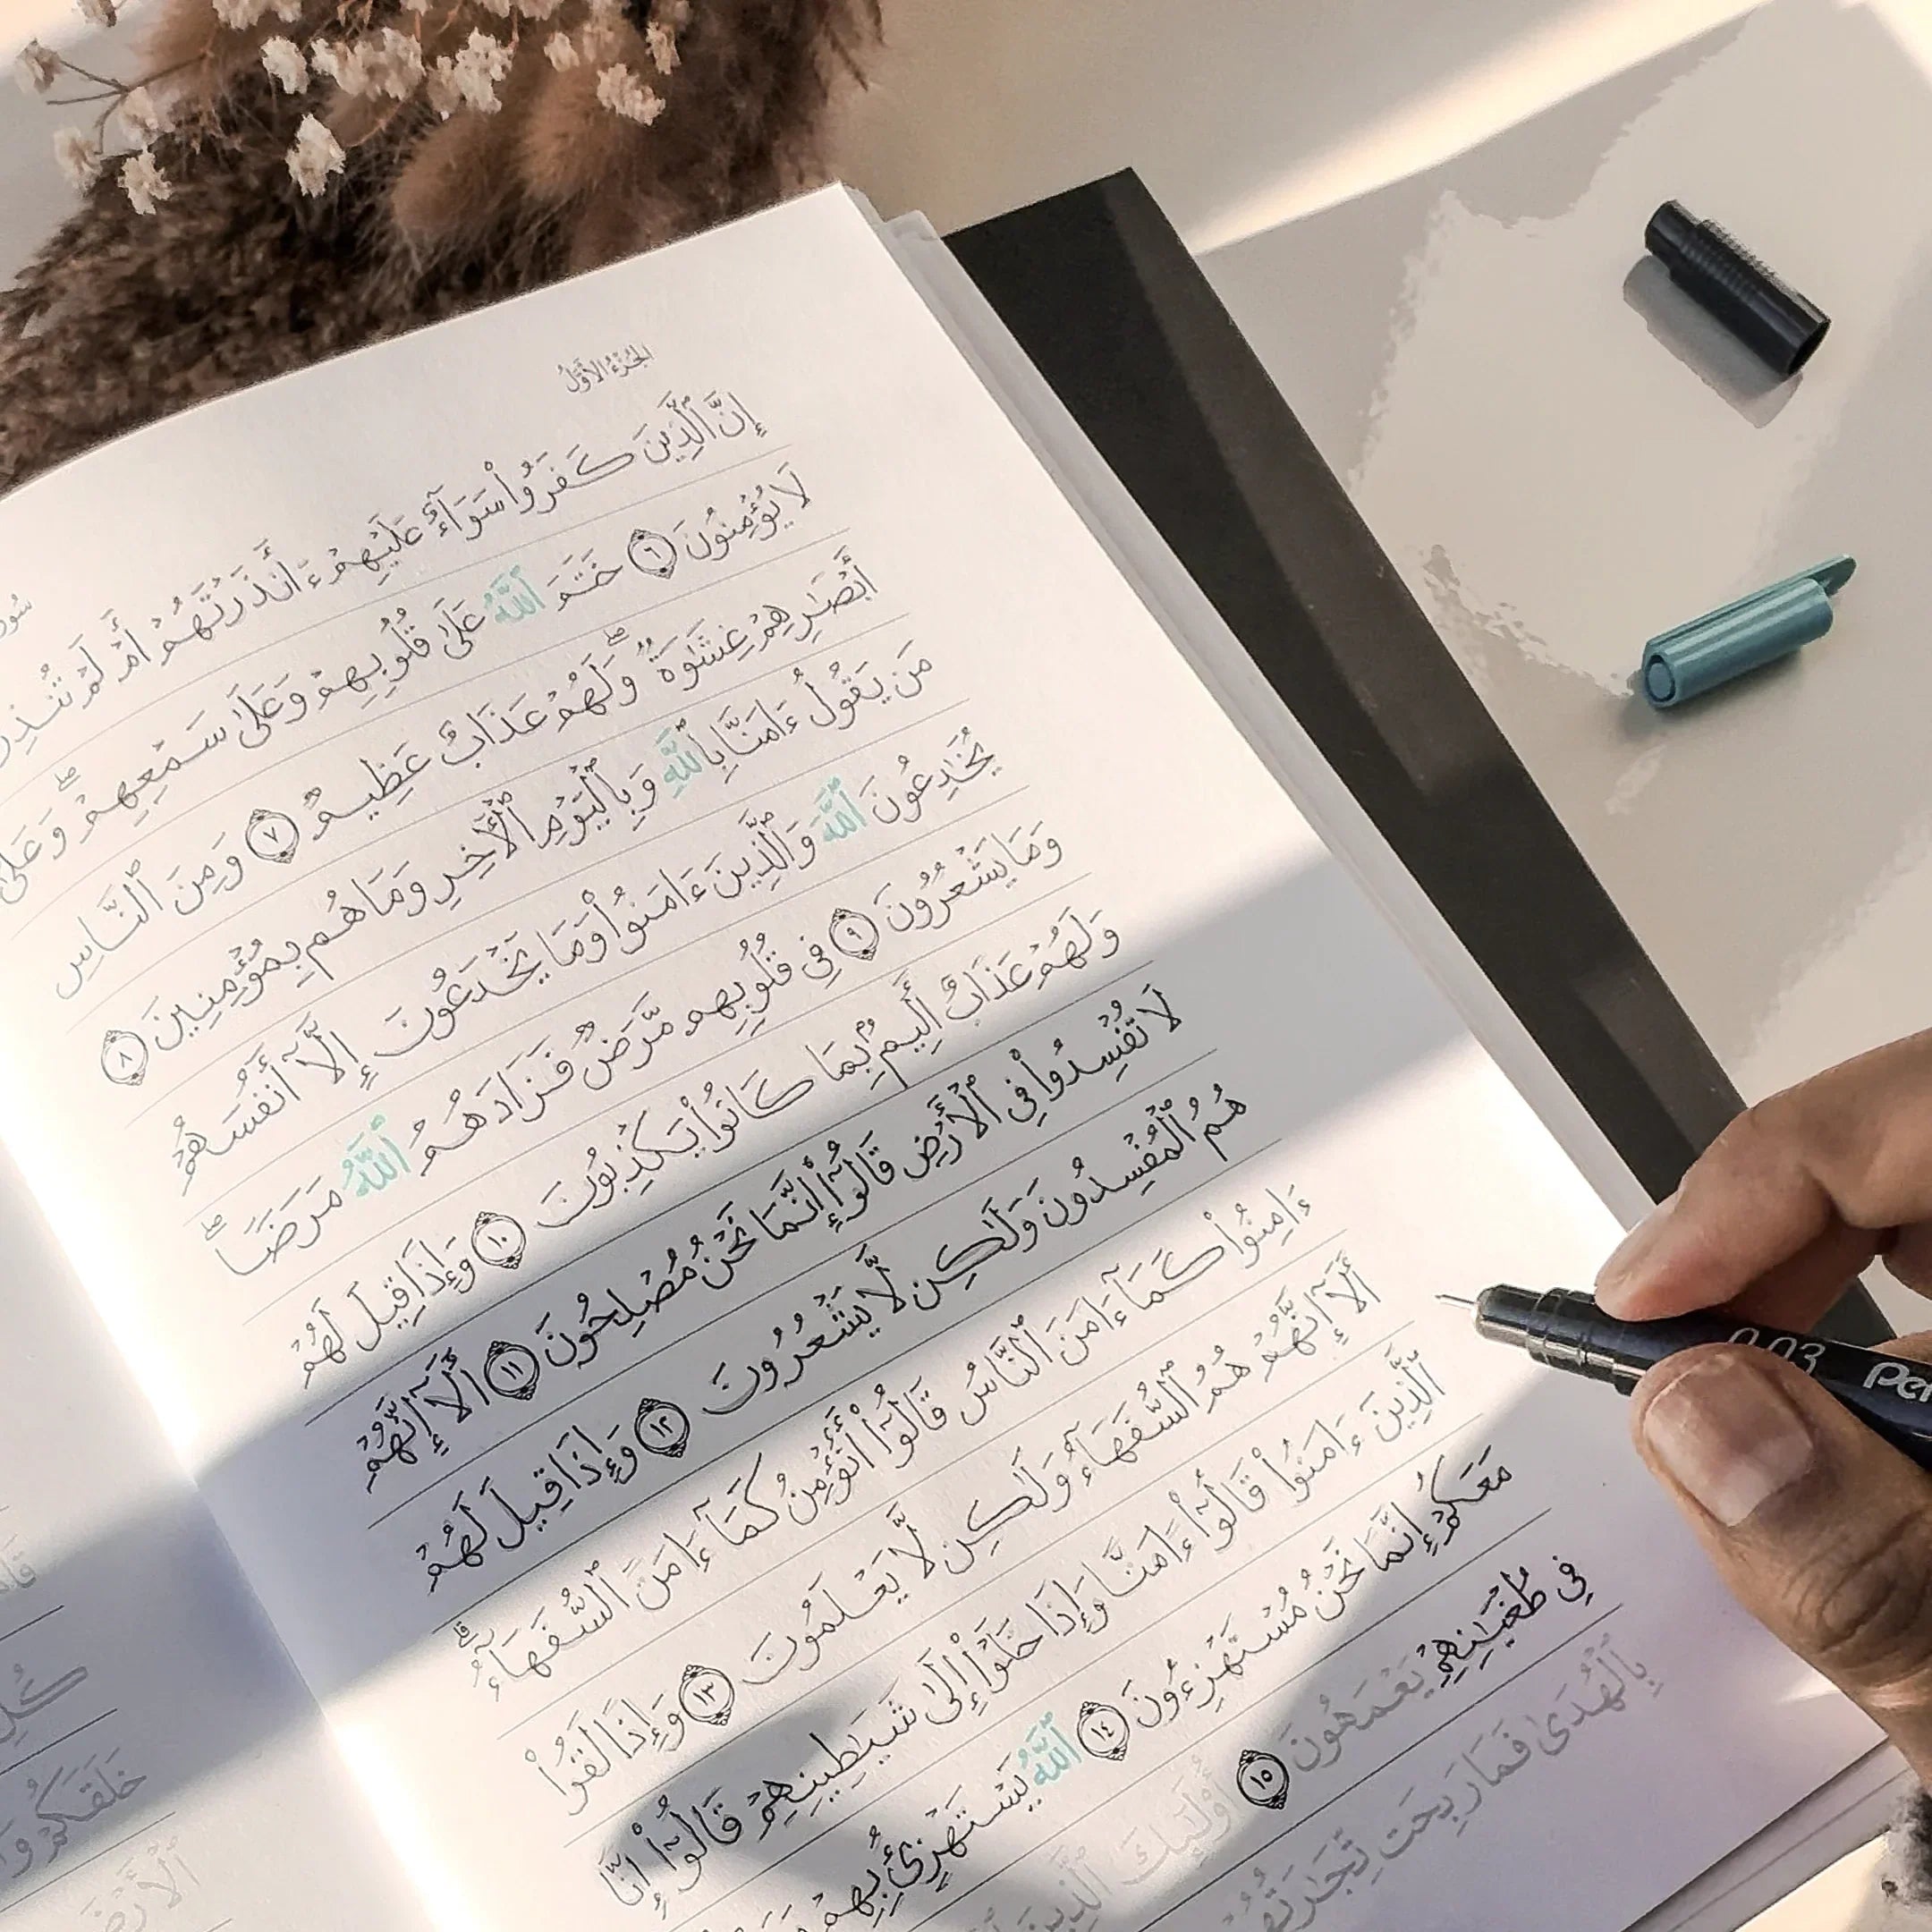 الجُزْءُ الأَوَّلُ
إِنَّ ٱلَّذِينَ كَفَرُوا۟ سَوَآءٌ عَلَيْهِمْ ءَأَنذَرْتَهُمْ أَمْ لَمْ تُنذِرْ
لَا يُؤْمِنُونَ ٦ خَتَمَ ٱللَّهُ عَلَىٰ قُلُوبِهِمْ وَعَلَىٰ سَمْعِهِمْ ۖ وَعَلَىٰ
أَبْصَـٰرِهِمْ غِشَـٰوَةٌ ۖ وَلَهُمْ عَذَابٌ عَظِيمٌ ٧ وَمِنَ ٱلنَّاسِ
مَن يَقُولُ ءَامَنَّا بِٱللَّهِ وَبِٱلْيَوْمِ ٱلْـَٔاخِرِ وَمَا هُم بِمُؤْمِنِينَ ٨
يُخَـٰدِعُونَ ٱللَّهَ وَٱلَّذِينَ ءَامَنُوا۟ وَمَا يَخْدَعُونَ إِلَّآ أَنفُسَهُمْ
وَمَا يَشْعُرُونَ ٩ فِى قُلُوبِهِم مَّرَضٌ فَزَادَهُمُ ٱللَّهُ مَرَضًا ۖ
وَلَهُمْ عَذَابٌ أَلِيمٌۢ بِمَا كَانُوا۟ يَكْذِبُونَ ١٠ وَإِذَا قِيلَ لَهُمْ
لَا تُفْسِدُوا۟ فِى ٱلْأَرْضِ قَالُوٓا۟ إِنَّمَا نَحْنُ مُصْلِحُونَ ١١ أَلَآ إِنَّهُمْ
هُمُ ٱلْمُفْسِدُونَ وَلَـٰكِن لَّا يَشْعُرُونَ ١٢ وَإِذَا قِيلَ لَهُمْ
ءَامِنُوا۟ كَمَآ ءَامَنَ ٱلنَّاسُ قَالُوٓا۟ أَنُؤْمِنُ كَمَآ ءَامَنَ ٱلسُّفَهَآءُ ۗ
أَلَآ إِنَّهُمْ هُمُ ٱلسُّفَهَآءُ وَلَـٰكِن لَّا يَعْلَمُونَ ١٣ وَإِذَا لَقُوا۟
ٱلَّذِينَ ءَامَنُوا۟ قَالُوٓا۟ ءَامَنَّا وَإِذَا خَلَوْا۟ إِلَىٰ شَيَـٰطِينِهِمْ قَالُوٓا۟ إِنَّا
مَعَكُمْ إِنَّمَا نَحْنُ مُسْتَهْزِءُونَ ١٤ ٱللَّهُ يَسْتَهْزِئُ بِهِمْ
فِى طُغْيَـٰنِهِمْ يَعْمَهُونَ ١٥ أُو۟لَـٰٓئِكَ ٱلَّذِينَ
بِٱلْهُدَىٰ فَمَا رَبِحَت تِّجَـٰرَتُهُمْ
خَلَقَكُمْ
0.03